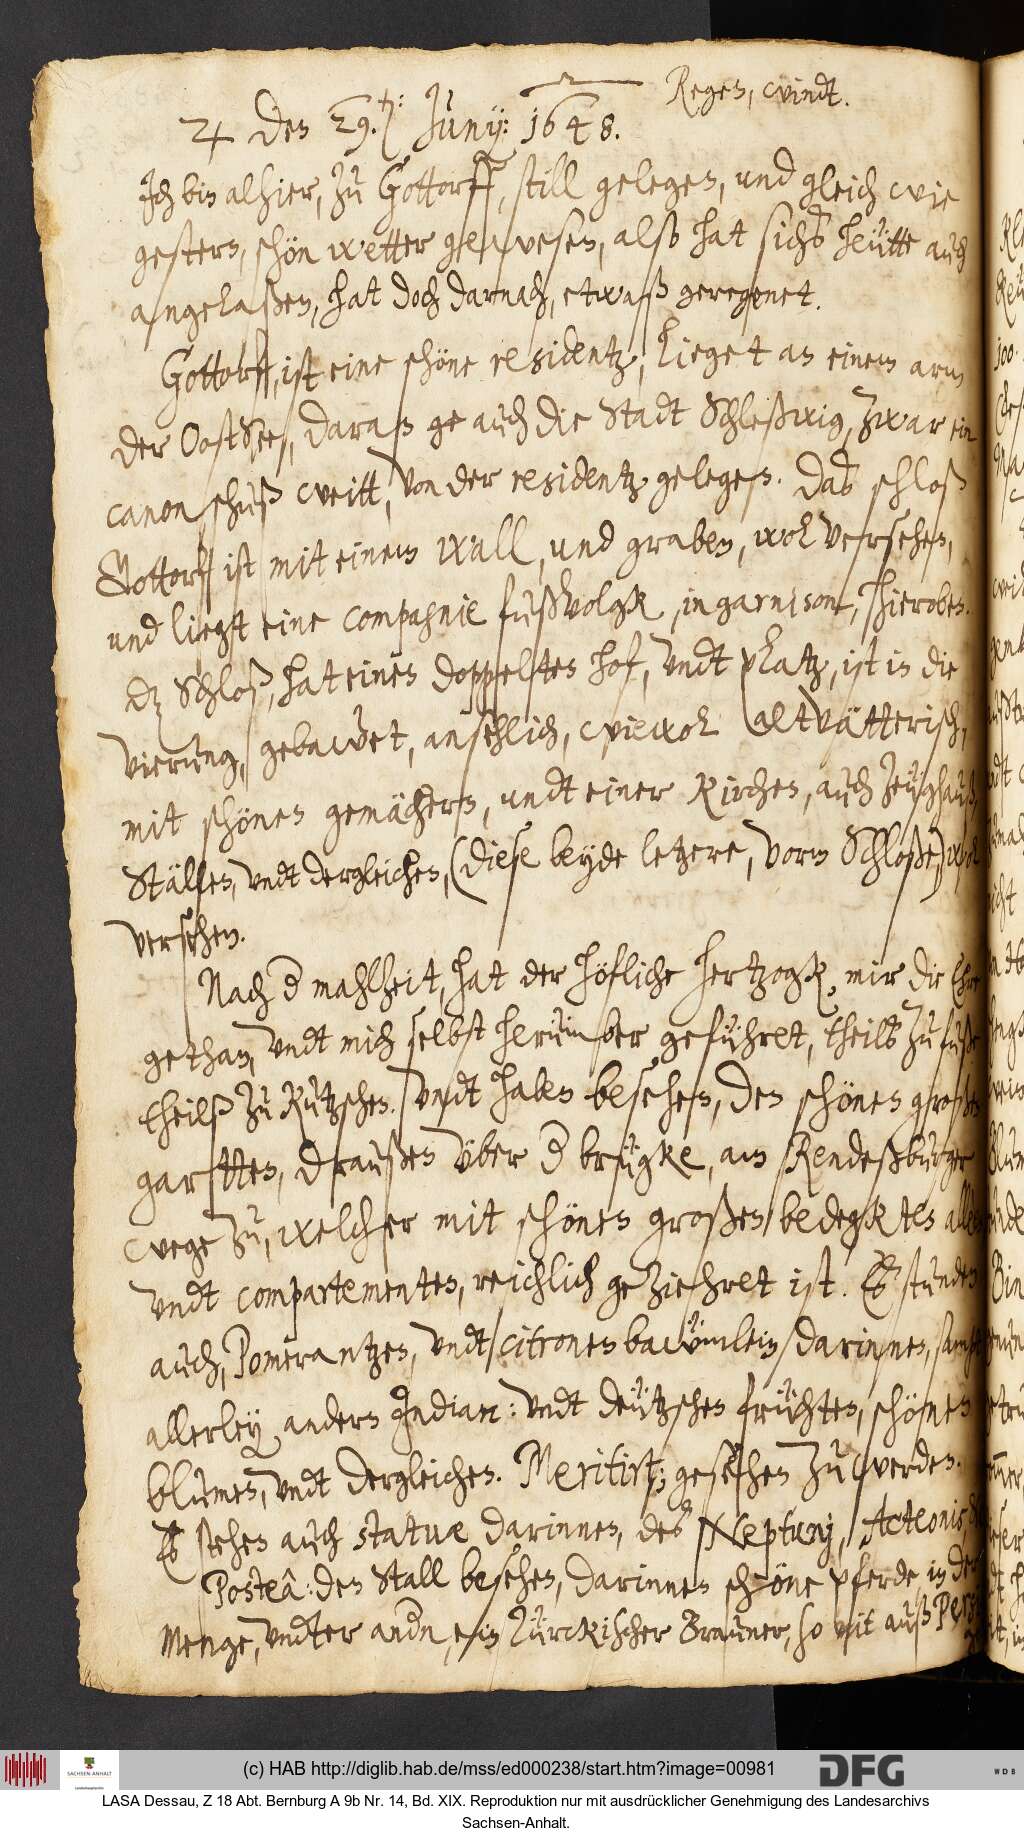 Regen, windt.
♃ den 29.ten: Junij: 1648.
Jch bin alhier, zu Gottorff, still gelegen, und gleich wie
gestern, schön wetter gewesen, also hat sichs heütte auch
angelaßen, hat doch darnach, etwaß geregenet.
Gottorff, ist eine schöne residentz, lieget an einem arm
der OostSee, daran auch die Stadt Schleßwig, zwar ein
canonschuß weitt, von der residentz gelegen. Das schloß
Gottorff ist mit einem wall, und graben, wol versehen,
und liegt eine compagnie fußvolgk, in garnison, hieroben.
Dz Schloß, hat einen doppelten hof, undt platz, ist in die
vierung, gebawet, ansehlich, wiewol altvätterisch,
mit schönen gemächern, undt einer Kirchen, auch Zeughauß,
Ställen, undt dergleichen, (diese beyde letzere, vorm Schloße) wol
versehen.
Nach d mahlzeit, hat der höfliche Hertzogk, mir die Ehre
gethan, undt mich selbst herumber geführet, theils zu fuße
theilß zu Kutzschen. Undt haben besehen, den schönen großen
gartten, draußen über d brügke, am Rendeßburger
wege zu, welcher mit schönen großen bedegkten alleen
undt compartementen, reichlich geziehret ist. Es stunden
auch, Pomerantzen, undt citronen bawümlein darinnen, sampt
allerley andern Jndian: undt deützschen früchten, schönen
blumen, undt dergleichen. Meritirt, gesehen zu werden.
Es stehen auch statuæ darinnen, des Neptunj, Acteonis
Posteâ: den Stall besehen, darinnen schöne pferde in der
Menge, undter andn, ein Türckischer Brauner, so mit auß
(c) HAB http://diglib.hab.de/mss/ed000238/start.htm?image=00981
SACHSEN-ANHALT
DFG
WDB
LASA Dessau, Z 18 Abt. Bernburg A 9b Nr. 14, Bd. XIX. Reproduktion nur mit ausdrücklicher Genehmigung des Landesarchivs
Sachsen-Anhalt.